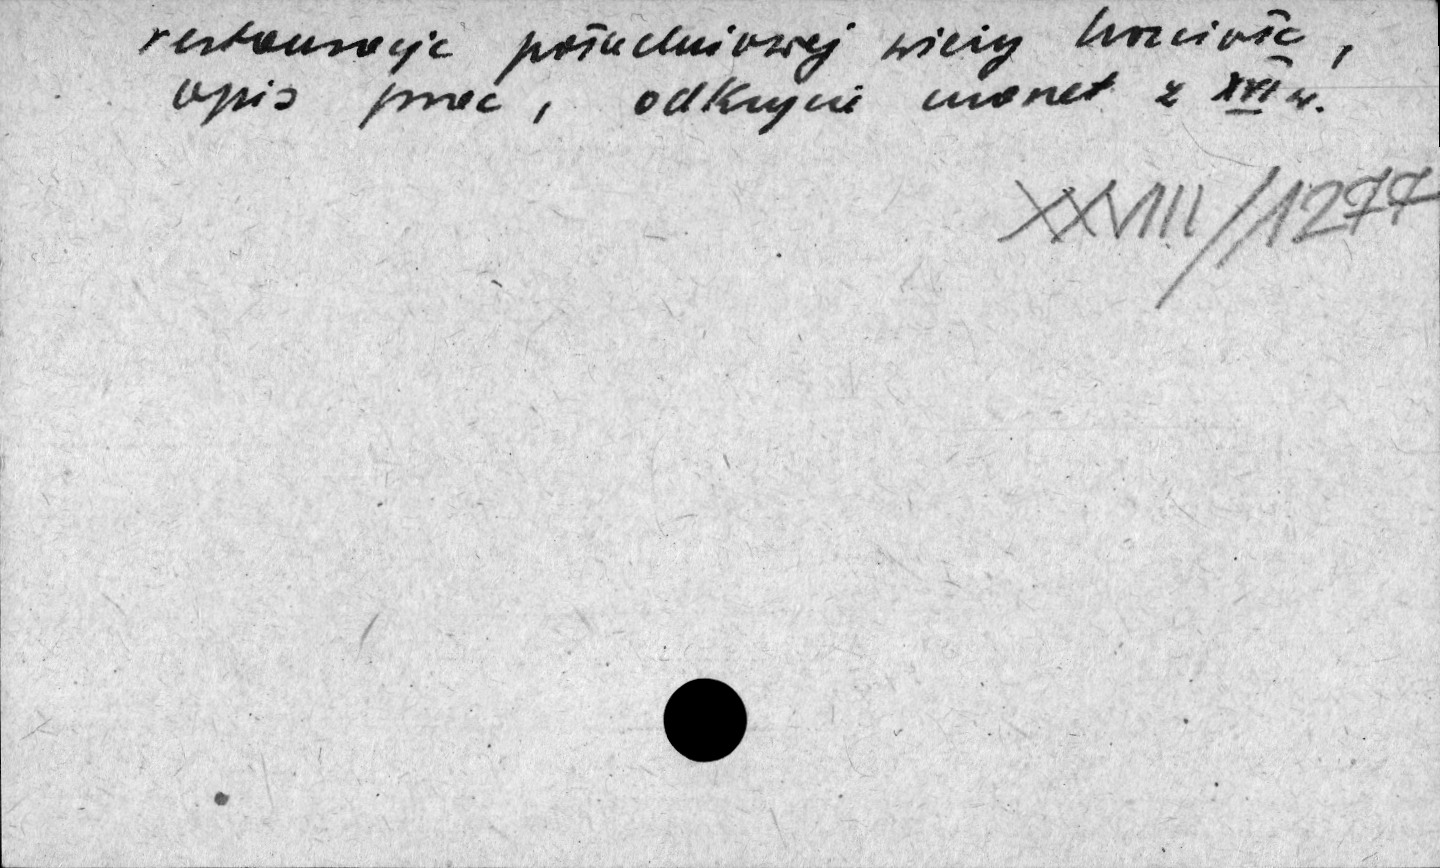 restauracja południowej wieży kościoła,
opis prac, odkrycie monet z XVI w.
XXVIII/1277